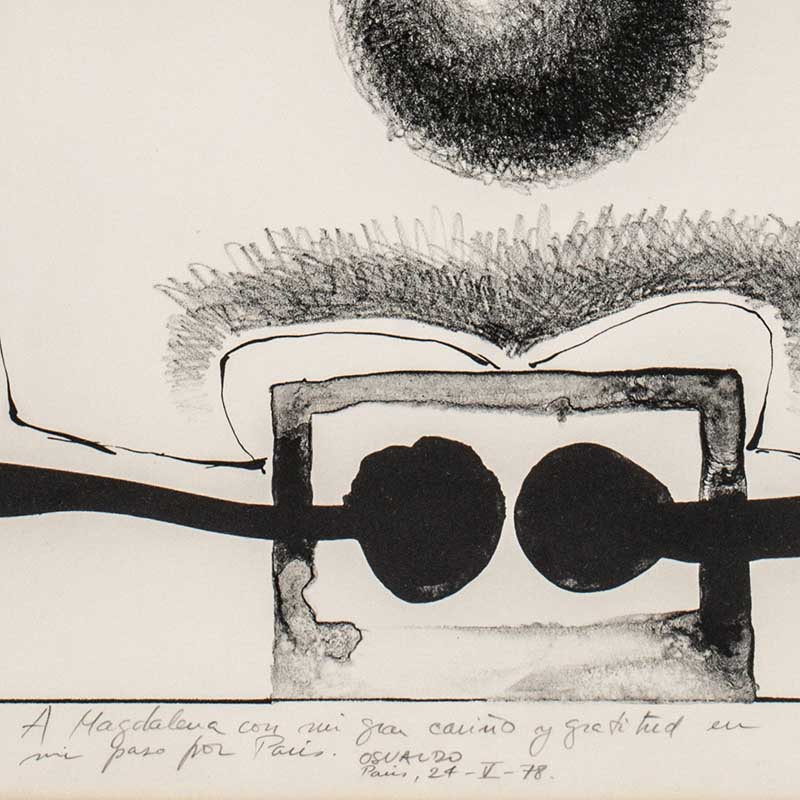 A Magdalena con mi gran cariño y gratitud en
mi paso por Paris. OSVALDO
Paris, 24-V-78.